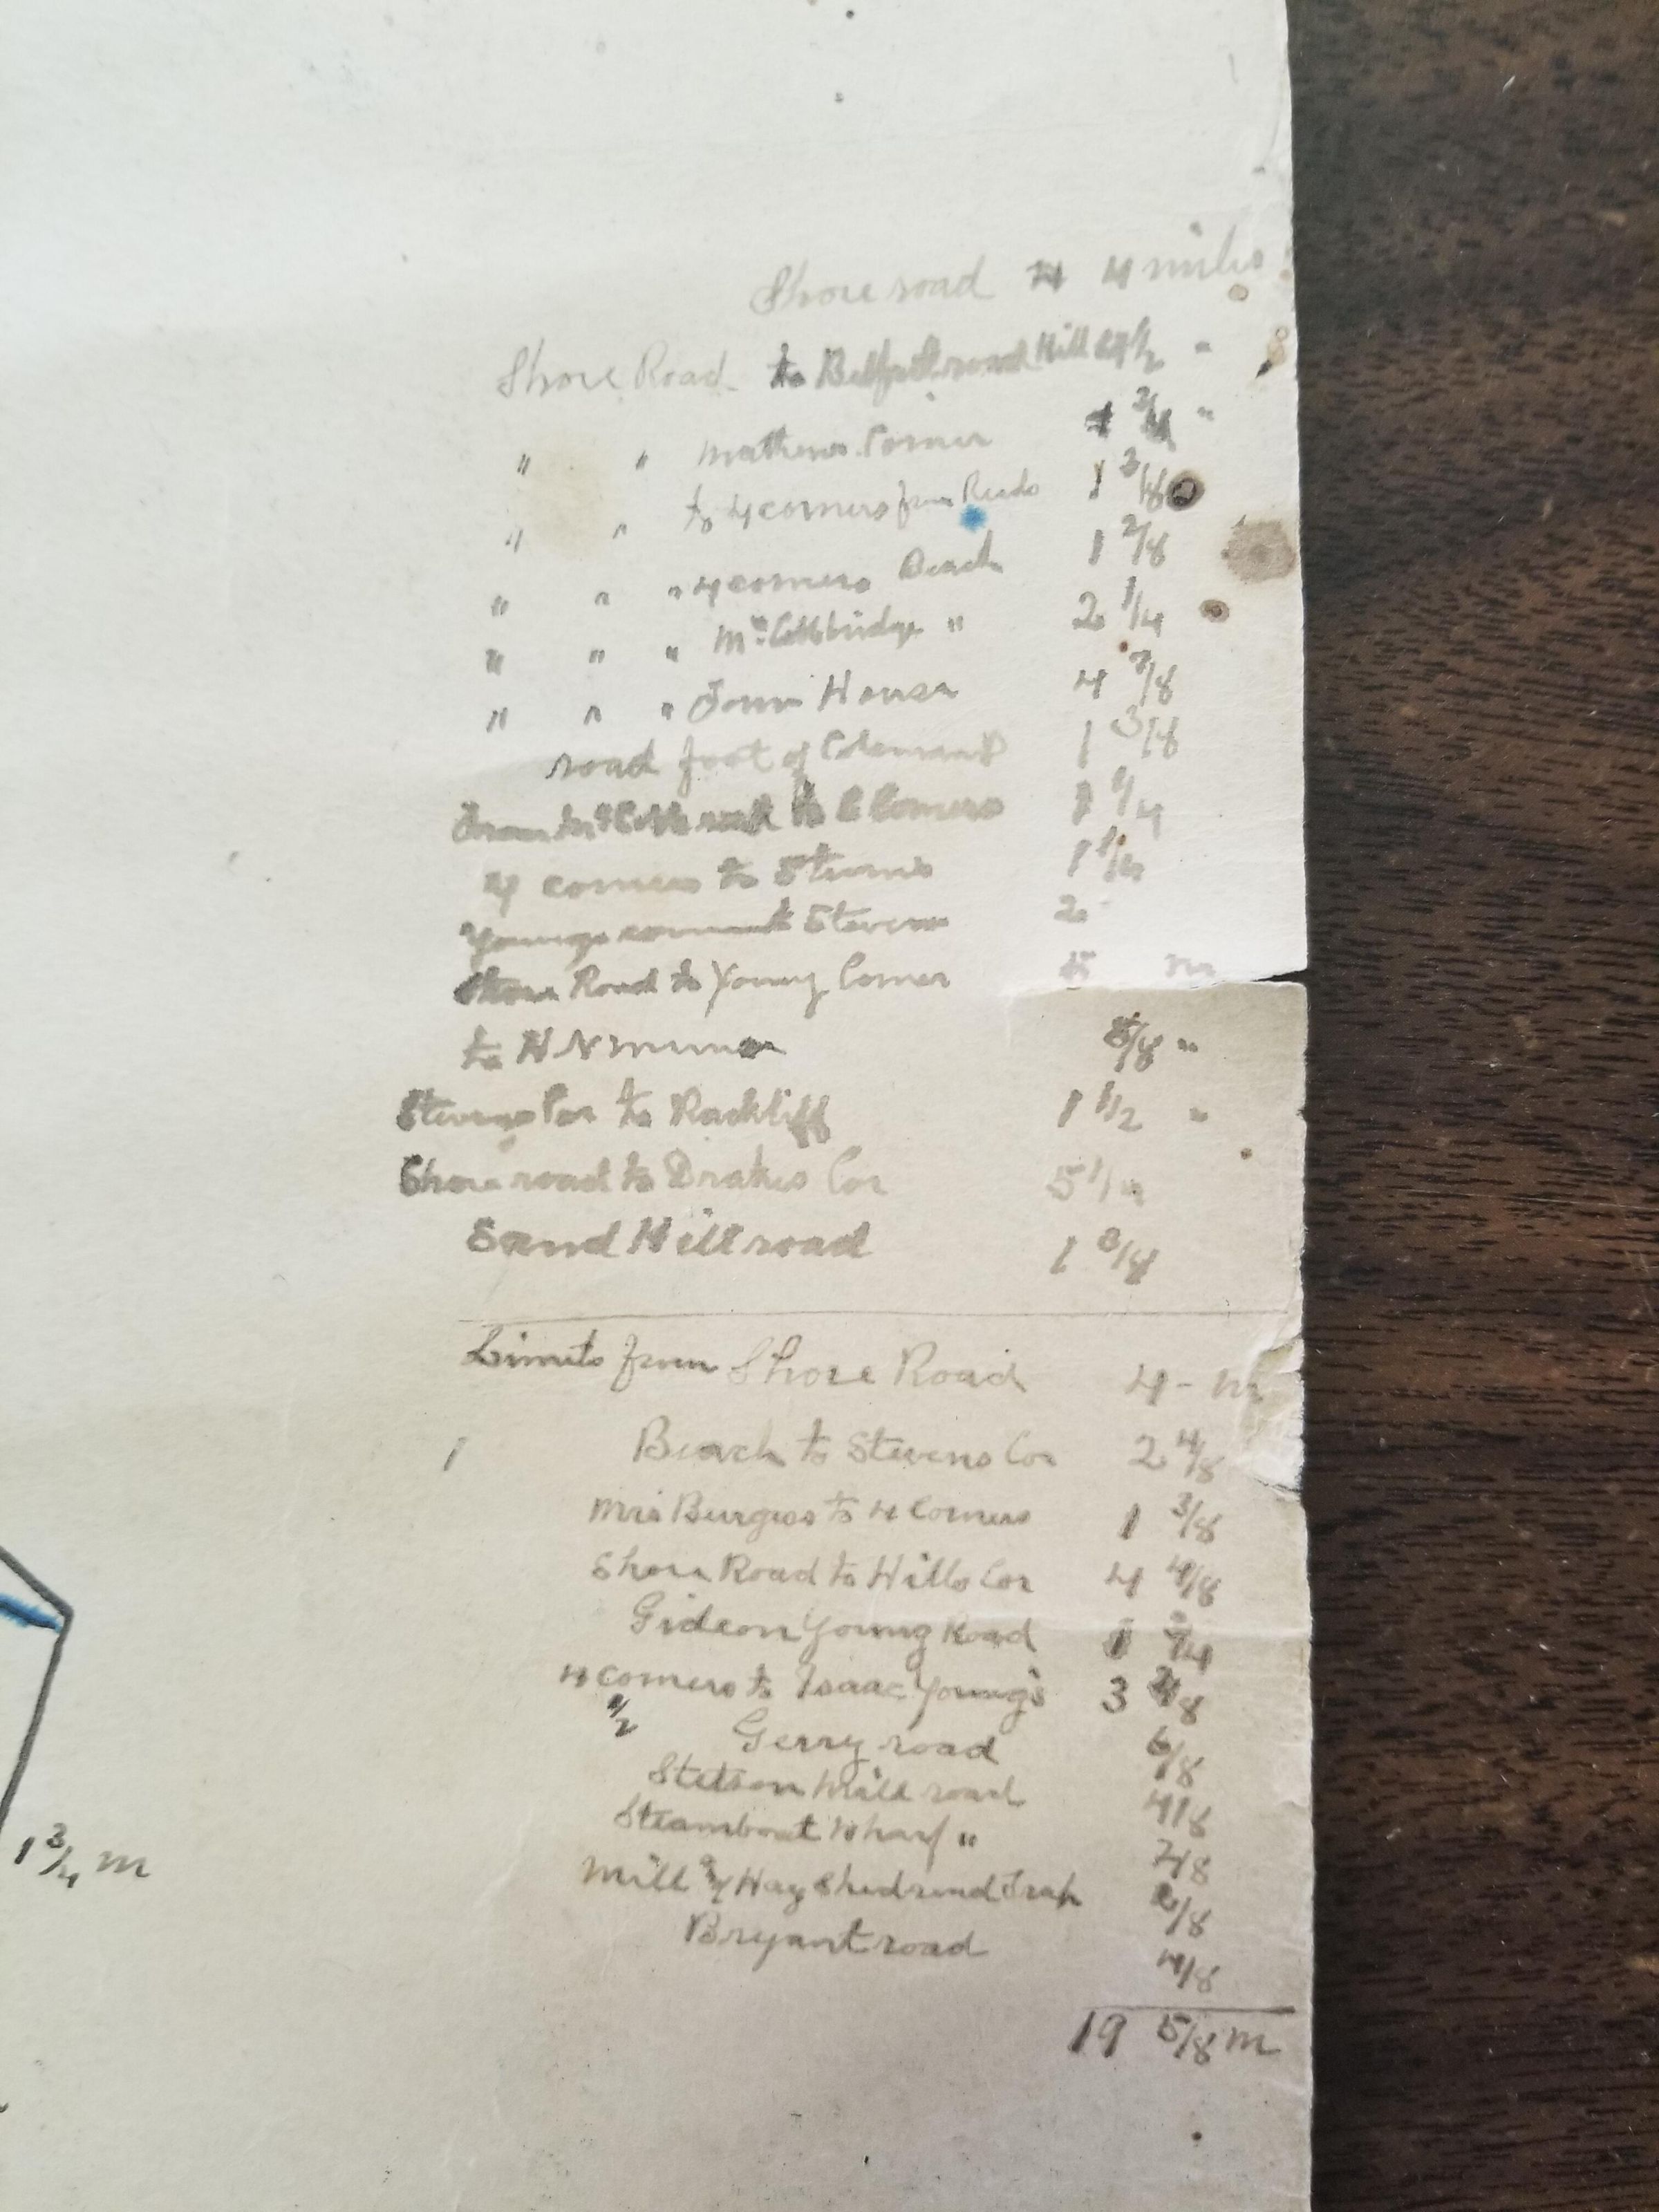 Shore road 4 miles
Shore Road to Belfast road Hill
" " Mathews Corner
" " to 4 corners from Reads 1 3/8
" " " 4 corners Beach 1 2/8
" " " bridge " 2 1/4
" " " Town House 4 7/8
road foot of Colemans 1 3/8
From road to Corners
4 corners to Stevens
Youngs to Stevens 2
Shore Road to Young Corner 5 m
to H N 5/8 "
Stevens Cor to Rackliff 1 1/2 "
Shore road to Drakes Cor
Sand Hill road 1 3/8
Limits from Shore Road 4 - m
1 Beach to Stevens Cor 2 4/8
Mrs Burgess to 4 Corners 1 3/8
Shore Road to Hills Cor 4 4/8
Gideon Young Road 1
4 corners to Isaac Young's 3
1/2 Gerry road 6/8
Stetson Mill road 4/8
Steamboat Wharf " 7/8
Mill Hay Shed 2/8
Bryant road 4/8
19 5/8 m
1 3/4 m